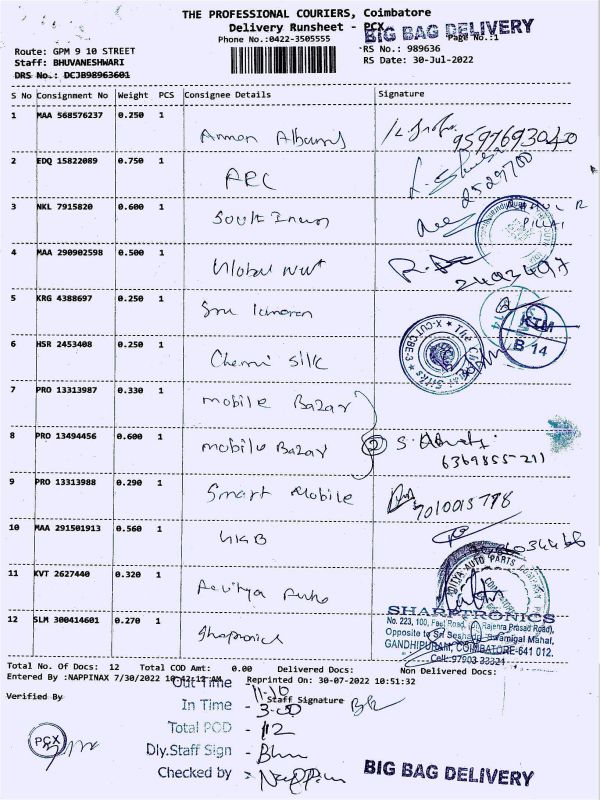 THE PROFESSIONAL COURIERS, Coimbatore
Delivery Runsheet - PCX
BIG BAG DELIVERY
Phone No.:0422-3505555
Page No.:1
Route: GPM 9 10 STREET
RS No.: 989636
Staff: BHUVANESHWARI
RS Date: 30-Jul-2022
DRS No.: DCJB98963601
S No Consignment No Weight PCS Consignee Details Signature
1 MAA 568576237 0.250 1
9597693040
2 EDQ 15822089 0.750 1 ARC
2529700
3 NKL 7915820 0.600 1 South Indian
PILLAI
4 MAA 290902598 0.500 1 Global
5 KRG 4388697 0.250 1 Sru kumaran
KTM
B 14
6 HSR 2453408 0.250 1 Chennai Silk
X-CUT CBE-3 * The Chennai Silks *
7 PRO 13313987 0.330 1 mobile Bazar
8 PRO 13494456 0.600 1 mobile Bazar
2 S.
6369855-211
9 PRO 13313988 0.290 1 Smart Mobile
7010015778
10 MAA 291501913 0.560 1
11 KVT 2627440 0.320 1 Aditya Auto
12 SLM 300414601 0.270 1
SHARPTRONICS
No. 223, 100, Feet Road, Rajenra Prosad Road),
Opposite to Sri Seshadri Swamigal Mahal,
GANDHIPURAM, COIMBATORE-641 012.
Cell: 97903 33321
Total No. Of Docs: 12 Total COD Amt: 0.00 Delivered Docs: Non Delivered Docs:
Entered By :NAPPINAX 7/30/2022 10:42:12 AM Reprinted On: 30-07-2022 10:51:32
Out Time - 11-10
Verified By
Staff Signature
In Time - 3-00
Total POD - 12
PCX
Dly.Staff Sign -
Checked by -
BIG BAG DELIVERY